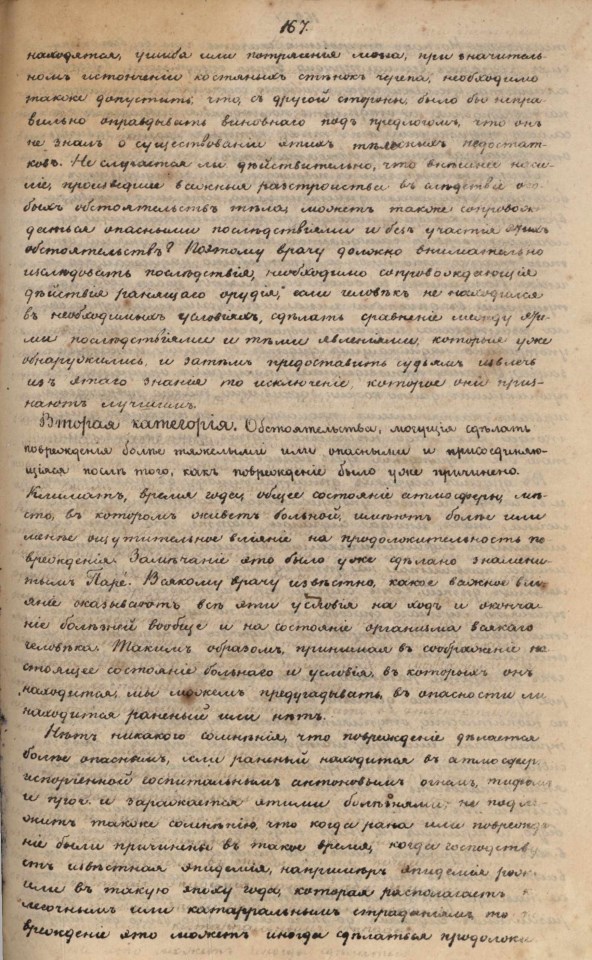 167.
находятся, ушиба или потрясенія мозга, при значитель-
номъ истонченіи костяныхъ стѣнокъ черепа, необходимо
также допустить, что, съ другой стороны, было бы непра-
вильно оправдывать виновнаго подъ предлогомъ, что онъ
не зналъ о существованіи этихъ тѣлесныхъ недостат-
ковъ. Не случается ли дѣйствительно, что внѣшнее наси-
ліе, произведшее важныя разстройства въ слѣдствіе осо-
быхъ обстоятельствъ тѣла, можетъ также сопровож-
даться опасными послѣдствіями и безъ участія этихъ
обстоятельствъ? Поэтому врачу должно внимательно
изслѣдовать послѣдствія, необходимо сопровождающія
дѣйствія ранящаго орудія, если человѣкъ не находился
въ необходимыхъ условіяхъ, сдѣлать сравненіе между эти-
ми послѣдствіями и тѣми явленіями, которыя уже
обнаружились, и затѣмъ предоставить судьямъ извлечь
изъ этаго знанія то исключеніе, которое они приз-
наютъ лучшимъ.
Вторая категорія. Обстоятельства, могущія сдѣлать
поврежденія болѣе тяжелыми или опасными и присоединяю-
щіяся послѣ того, какъ поврежденіе было уже причинено.
Климатъ, время года, общее состояніе атмосферы, мѣ-
сто, въ которомъ живетъ больной, имѣютъ болѣе или
менѣе ощутительное вліяніе на продолжительность по-
врежденія. Замѣчаніе это было уже сдѣлано знамени-
тымъ Паре. Всякому врачу извѣстно, какое важное влі-
яніе оказываютъ всѣ эти условія на ходъ и оконча-
ніе болѣзней вообще и на состояніе организма всякаго
человѣка. Такимъ образомъ, принимая въ соображеніе на-
стоящее состояніе больнаго и условія, въ которыхъ онъ
находится, мы можемъ предугадывать, въ опасности ли
находится раненый или нѣтъ.
Нѣтъ никакого сомнѣнія, что поврежденіе дѣлается
болѣе опаснымъ, если раненый находится въ атмосферѣ,
испорченной госпитальнымъ антоновымъ огнемъ, тифомъ
и проч. и заражается этими болѣзнями; не подле-
житъ также сомнѣнію, что когда рана или поврежде-
ніе были причинены въ такое время, когда господству
етъ извѣстная эпидемія, напримѣръ эпидемія рожи
или въ такую эпоху года, которая располагаетъ к
легочнымъ или катарральнымъ страданіямъ, то
врежденіе это можетъ иногда сдѣлаться продолжи